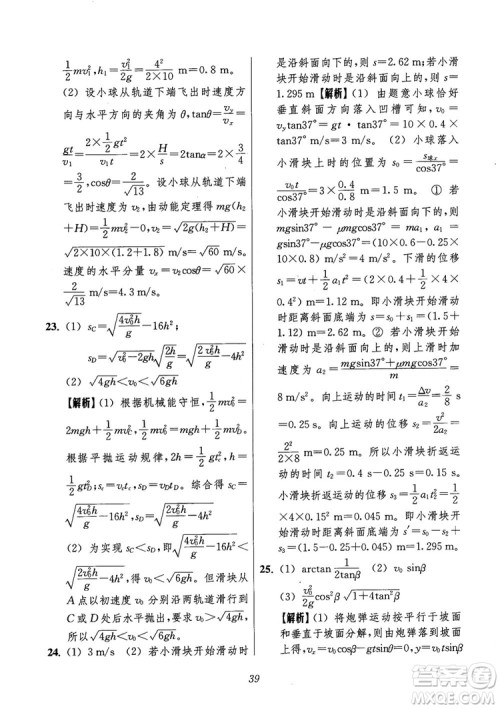 $\frac{1}{2}mv_1^2, h_1=\frac{v_1^2}{2g}=\frac{4^2}{2\times10}$ m=0.8 m。
(2) 设小球从轨道下端飞出时速度方
向与水平方向的夹角为 θ,tanθ=$\frac{v_y}{v_x}$=
$\frac{gt}{v_1}=\frac{2\times\frac{1}{2}gt^2}{v_1t}$=2×$\frac{h}{x}$=2tanα=2×$\frac{3}{4}$
=$\frac{3}{2}$,cosθ=$\frac{2}{\sqrt{13}}$。设小球从轨道下端
飞出时速度为 $v_2$,由动能定理得 mg($h_2$
+H)=$\frac{1}{2}mv_2^2$,$v_2=\sqrt{2g(h_2+H)}$=
$\sqrt{2\times10\times(1.2+1.8)}$ m/s=$\sqrt{60}$ m/s。
速度的水平分量 $v_x=v_2\cos\theta=\sqrt{60}$×
$\frac{2}{\sqrt{13}}$ m/s=4.3 m/s。
23. (1) $s_C=\sqrt{\frac{4v_0^2h}{g}-16h^2}$;
$s_D=\sqrt{v_0^2-2gh}\sqrt{\frac{2h}{g}}=\sqrt{\frac{2v_0^2h}{g}-4h^2}$
(2) $\sqrt{4gh}<v_0<\sqrt{6gh}$
【解析】(1) 根据机械能守恒,$\frac{1}{2}mv_0^2$=
2mgh+$\frac{1}{2}mv_C^2$,$\frac{1}{2}mv_0^2$=mgh+$\frac{1}{2}mv_D^2$。
根据平抛运动规律,2h=$\frac{1}{2}gt_C^2$,h=
$\frac{1}{2}gt_D^2$。$s_C=v_Ct_C$,$s_D=v_Dt_D$。综合得 $s_C$=
$\sqrt{\frac{4v_0^2h}{g}-16h^2}$,$s_D=\sqrt{\frac{2v_0^2h}{g}-4h^2}$。
(2) 为实现 $s_C<s_D$,即 $\sqrt{\frac{4v_0^2h}{g}-16h^2}$<
$\sqrt{\frac{2v_0^2h}{g}-4h^2}$,得 $v_0<\sqrt{6gh}$。但滑块从
A 点以初速度 $v_0$ 分别沿两轨道滑行到
C 或 D 处后水平抛出,要求 $v_0>\sqrt{4gh}$,
故 $\sqrt{4gh}<v_0<\sqrt{6gh}$。
24. (1) 3 m/s (2) 若小滑块开始滑动时
是沿斜面向下的,则 s=2.62 m;若小滑
块开始滑动时是沿斜面向上的,则 s=
1.295 m 【解析】(1) 由题意小球恰好
垂直斜面方向落入凹槽可得,$v_0$=
$v_y$tan37°=gt·tan37°=(10×0.4×
tan37°) m/s=3 m/s。(2) 小球落入
小滑块上时的位置为 $s_0=\frac{s_{球x}}{\cos37°}$=
$\frac{v_0t}{\cos37°}$=3×$\frac{0.4}{0.8}$ m=1.5 m。① 若
小滑块开始滑动时是沿斜面向下的:
mgsin37°-μmgcos37°=m$a_1$,$a_1$=
gsin37°-μgcos37°=(10×0.6-0.25×
10×0.8)m/s²=4 m/s²。下滑的位移
$s_1=vt+\frac{1}{2}a_1t^2$=(1×0.4+$\frac{1}{2}$×4×
0.4²) m=1.12 m。即小滑块开始滑动
时距离斜面底端为 s=$s_0$+$s_1$=1.5 m+
1.12 m=2.62 m。② 若小滑块开始滑
动时是沿斜面向上的:向上运动的加
速度 $a_2=\frac{mg\sin37°+\mu mg\cos37°}{m}$=
8 m/s²。向上运动的时间 $t_1=\frac{\Delta v}{a_2}$=
0.25 s。向上运动的位移 $s_2=\frac{v^2}{2a_2}$=
$\frac{2^2}{2\times8}$ m=0.25 m。小滑块折返运动的
时间 $t_2$=0.4 s-$t_1$=0.4 s-0.25 s=
0.15 s。小滑块折返运动的位移 $s_3$=
$\frac{1}{2}$×4×0.15² m=0.045 m。即小滑块
开始滑动时距离斜面底端为 s'=$s_0$-
$s_2$+$s_3$=1.5 m-0.25 m+0.045 m
=1.295 m。
25. (1) arctan$\frac{1}{2\tan\beta}$ (2) $v_0$ sinβ
(3) $\frac{v_0^2}{2g}$cos²β$\sqrt{1+4\tan^2\beta}$
【解析】(1) 将炮弹运动按平行于坡面
和垂直于坡面分解,由炮弹落到坡面
时的运动情况,$v_x=v_0\cos\theta=v_0t\sin\beta$
39
答案圈
MXQE.COM